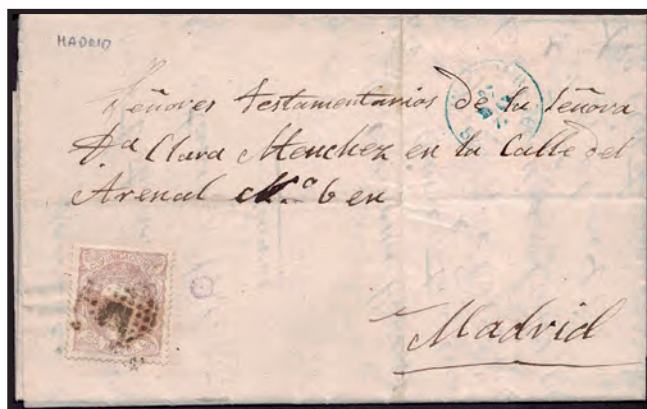 MADRID
Señores Testamentarios de la Señora
Dª Clara Menchez en la Calle del
Arenal N.º 6 en
Madrid